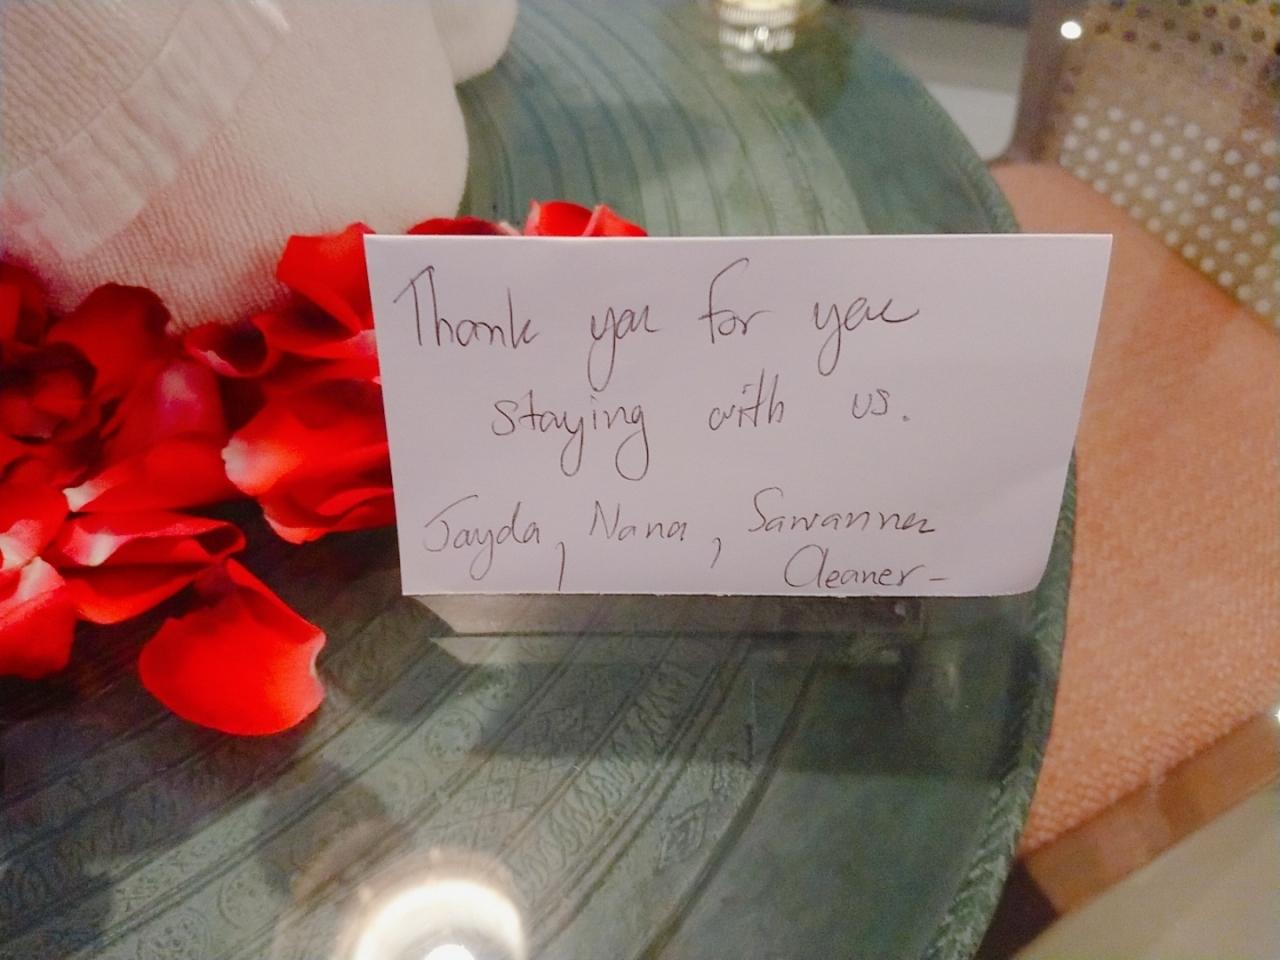 Thank you for you
staying with us.
Jayda, Nana, Sawanna
Cleaner-